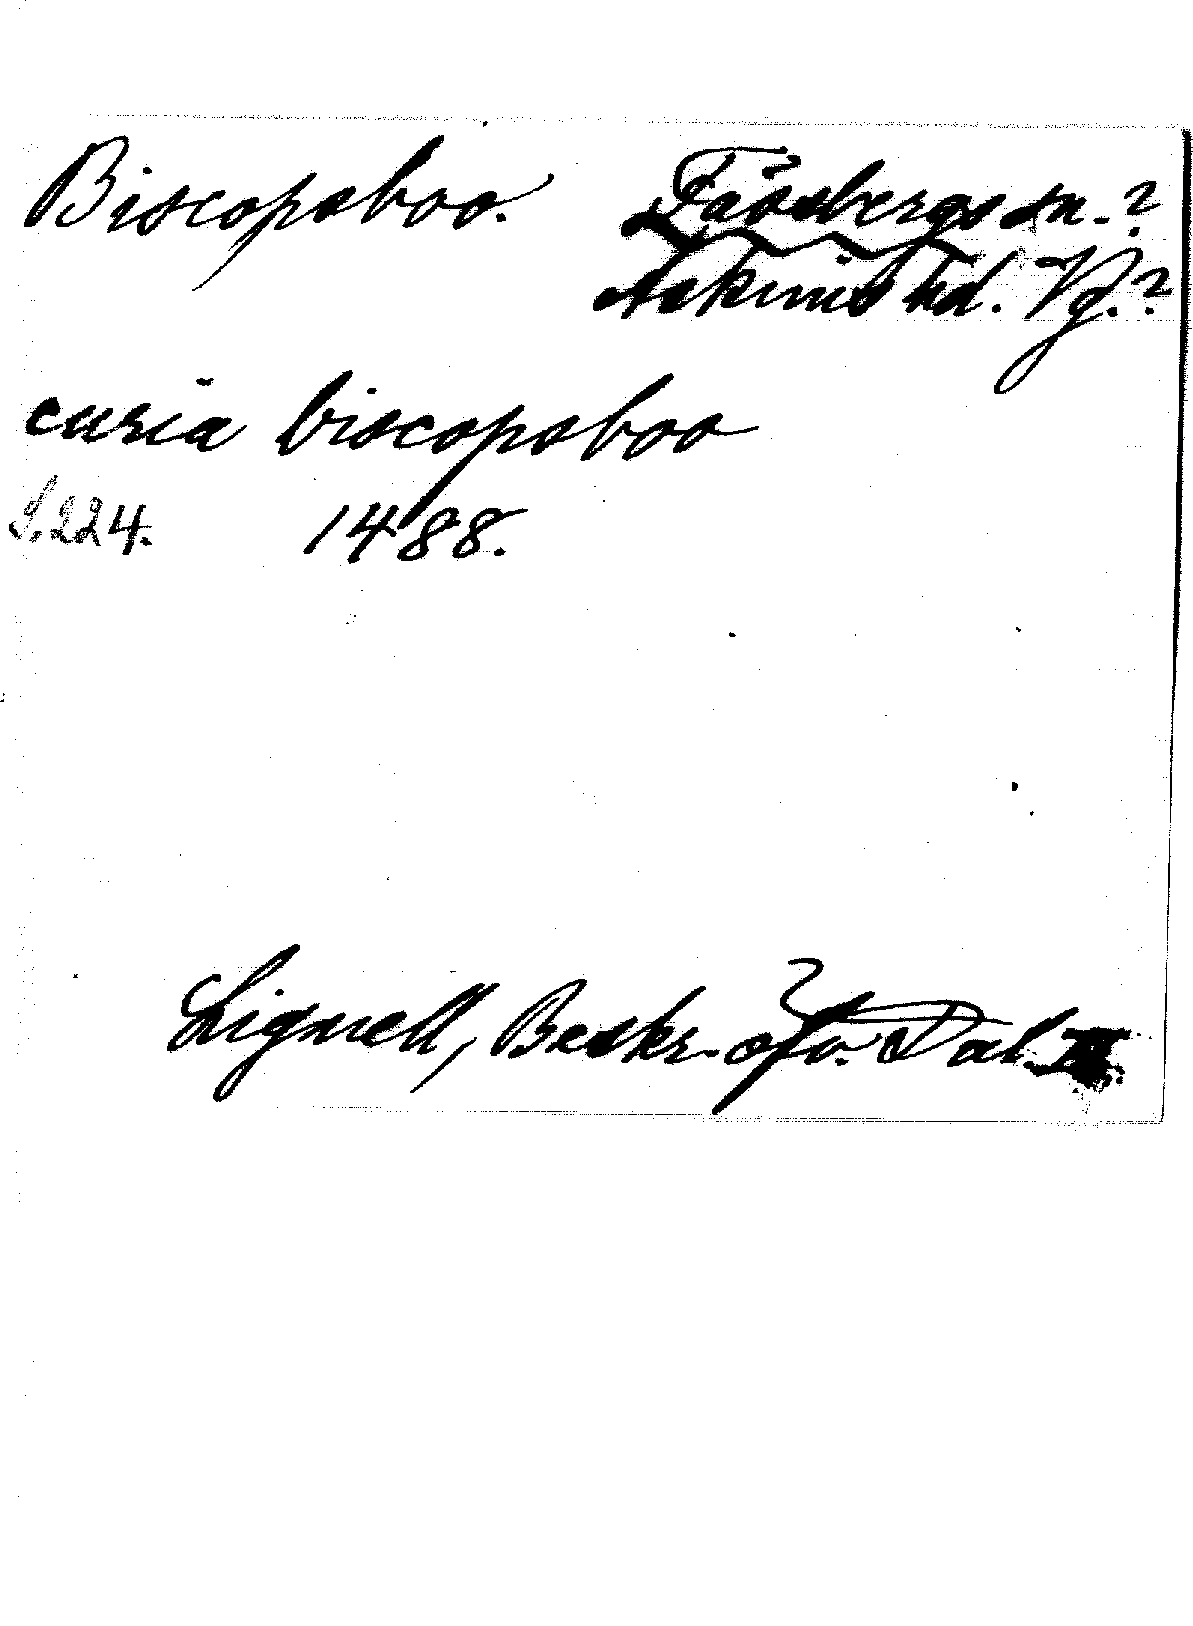 Biscopsboo. Fässbergs sn.?
Askims hd. Vg.?
curia biscopsboo
S. 224. 1488.
Lignell, Beskr. öfv. Dal. II